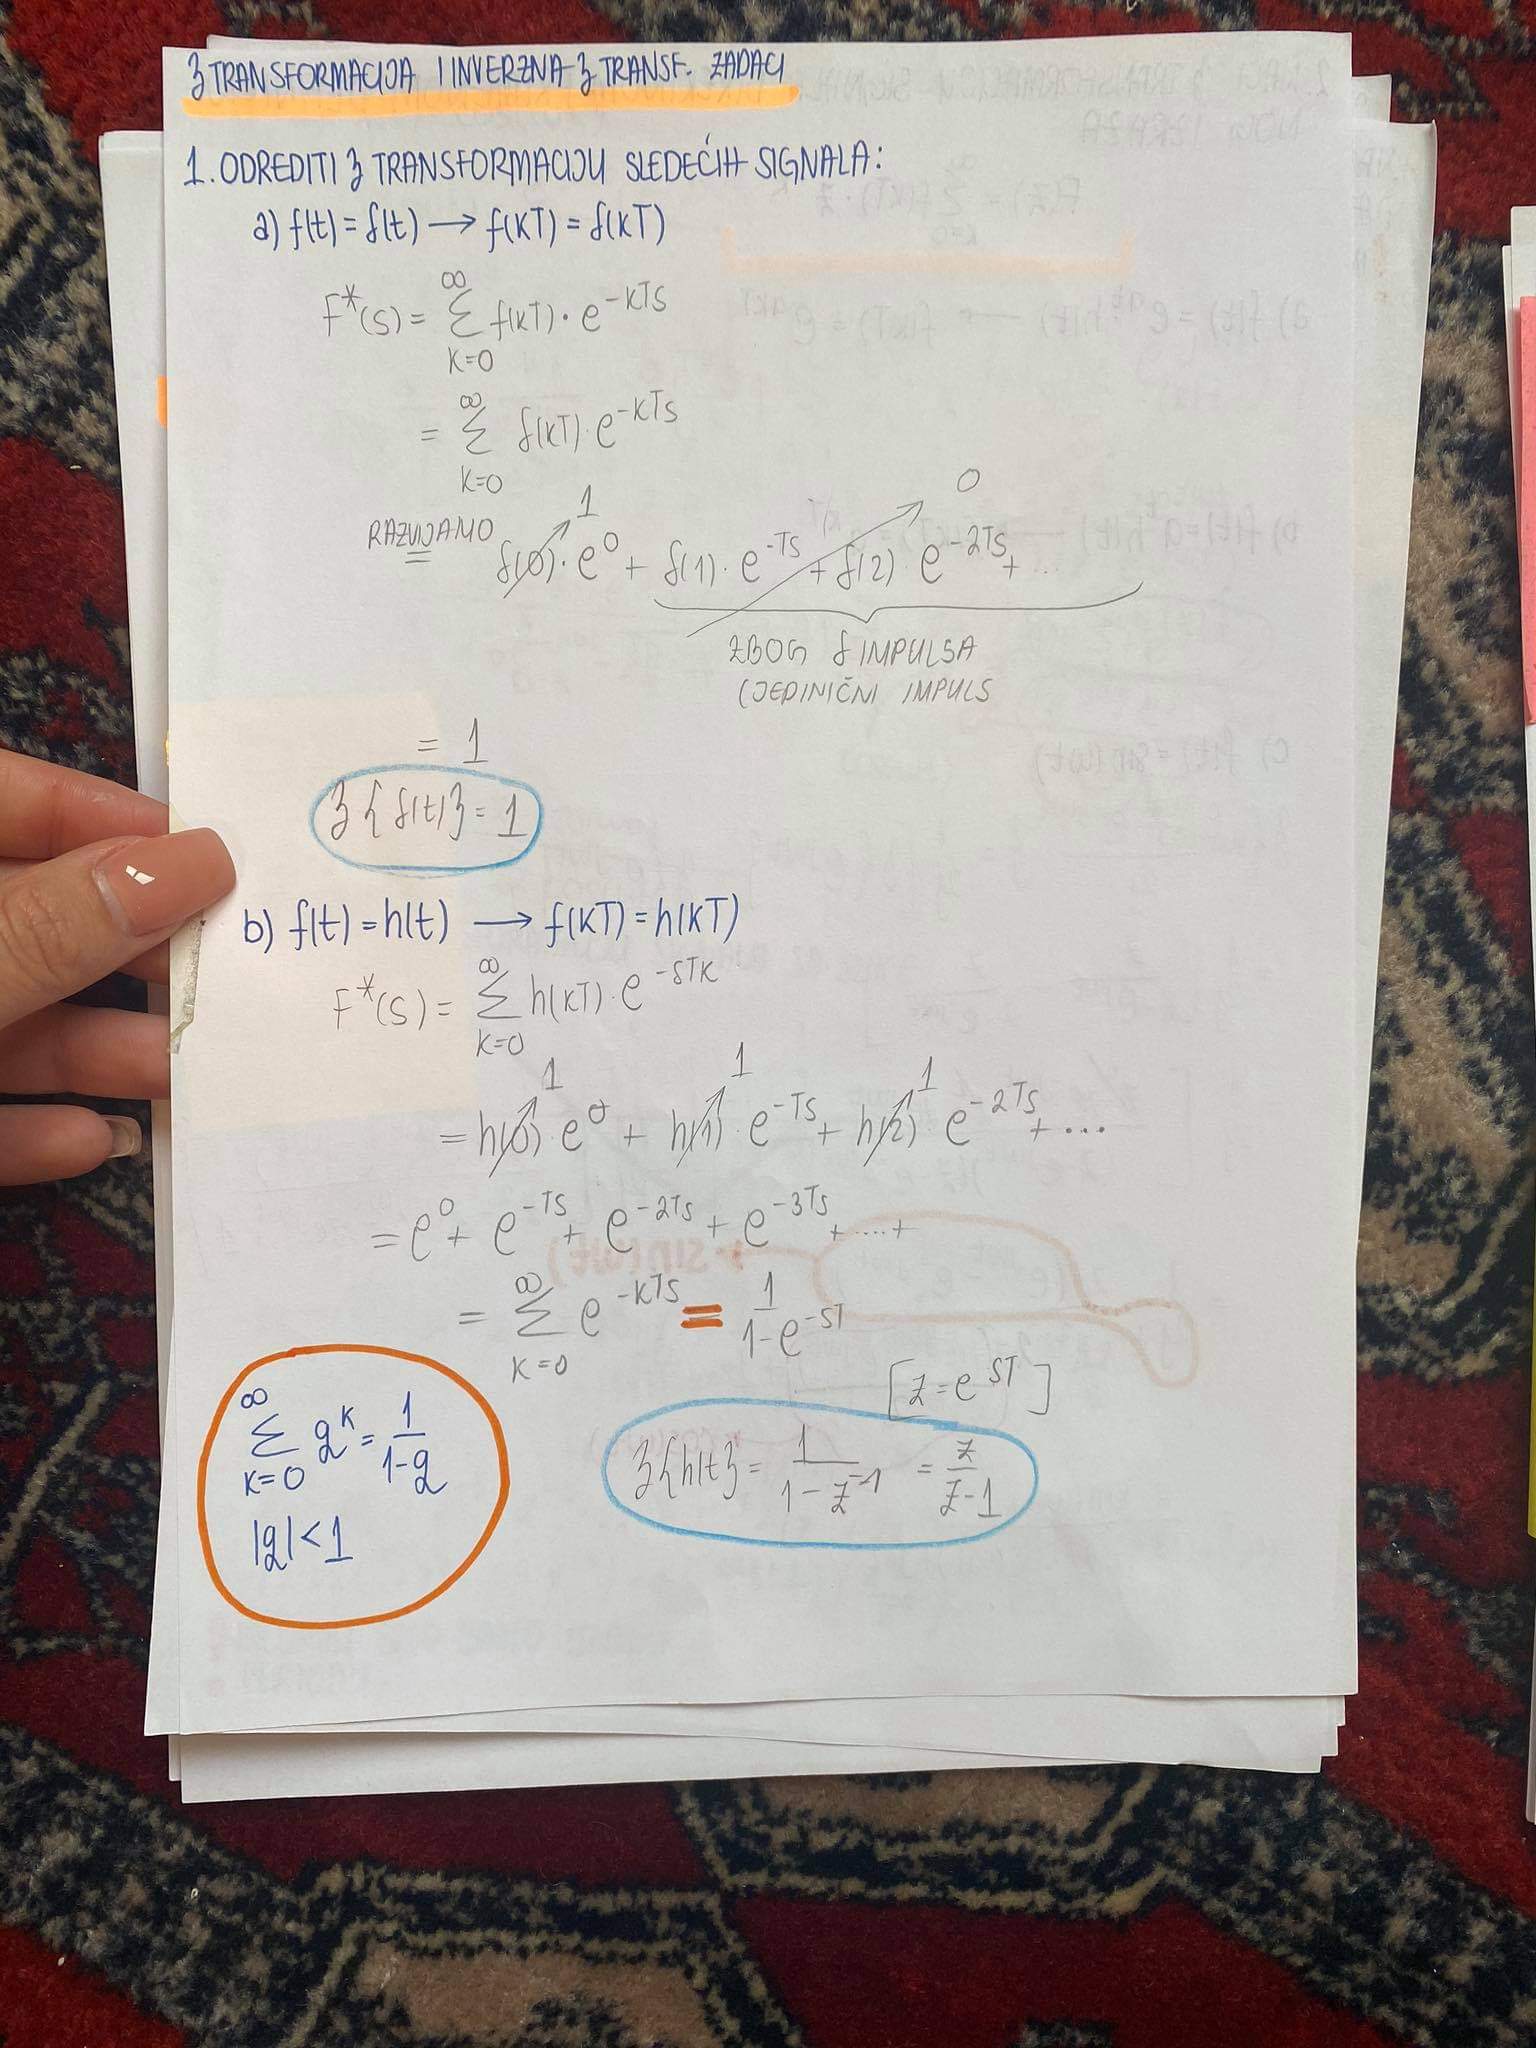 Z TRANSFORMACIJA I INVERZNA Z TRANSF. ZADACI
1. ODREDITI Z TRANSFORMACIJU SLEDEĆIH SIGNALA:
a) f(t) = δ(t) → f(kT) = δ(kT)
F*(s) = ∑_{k=0}^{∞} f(kT) · e^{-kTs}
= ∑_{k=0}^{∞} δ(kT) · e^{-kTs}
1 0
RAZVIJAMO = δ(0) · e^0 + δ(1) · e^{-Ts} + δ(2) · e^{-2Ts} + ...
ZBOG δ IMPULSA
(JEDINIČNI IMPULS
= 1
Z{δ(t)} = 1
b) f(t) = h(t) → f(kT) = h(kT)
F*(s) = ∑_{k=0}^{∞} h(kT) · e^{-sTk}
1 1 1
= h(0) · e^0 + h(1) · e^{-Ts} + h(2) e^{-2Ts} + ...
= e^0 + e^{-Ts} + e^{-2Ts} + e^{-3Ts} + ... +
= ∑_{k=0}^{∞} e^{-kTs} = 1/(1-e^{-sT})
[z = e^{sT}]
∑_{k=0}^{∞} q^k = 1/(1-q)
|q| < 1
Z{h(t)} = 1/(1-z^{-1}) = z/(z-1)